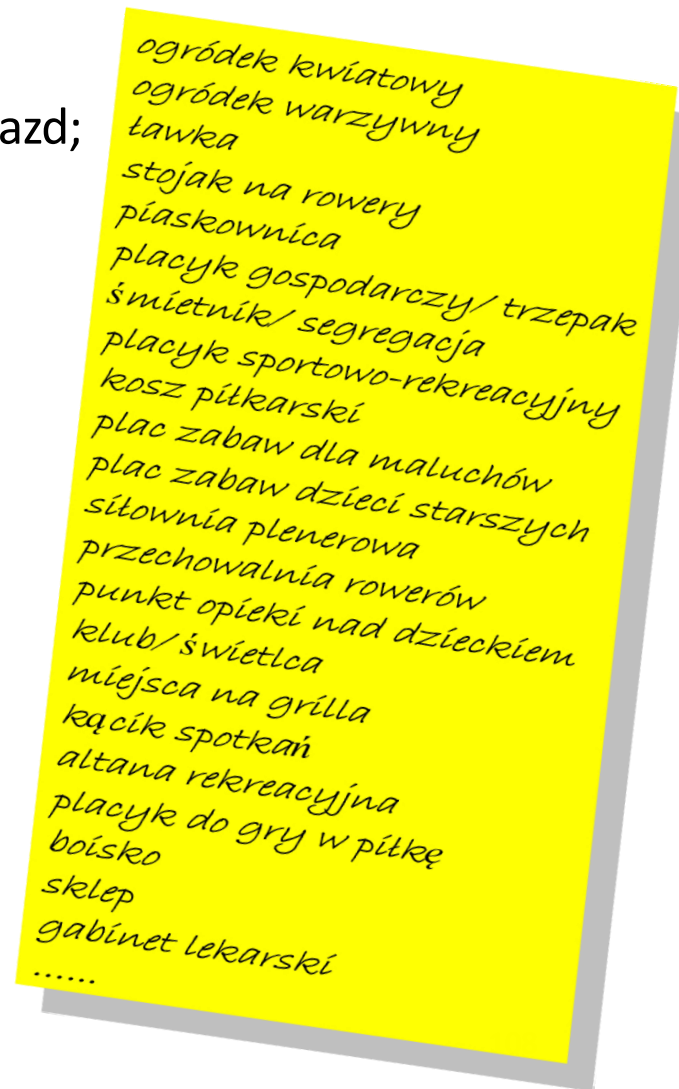 azd;
ogródek kwiatowy
ogródek warzywny
ławka
stojak na rowery
piaskownica
placyk gospodarczy/ trzepak
śmietnik/ segregacja
placyk sportowo-rekreacyjny
kosz piłkarski
plac zabaw dla maluchów
plac zabaw dzieci starszych
siłownia plenerowa
przechowalnia rowerów
punkt opieki nad dzieckiem
klub/ świetlca
miejsca na grilla
kącik spotkań
altana rekreacyjna
placyk do gry w piłkę
boisko
sklep
gabinet lekarski
......